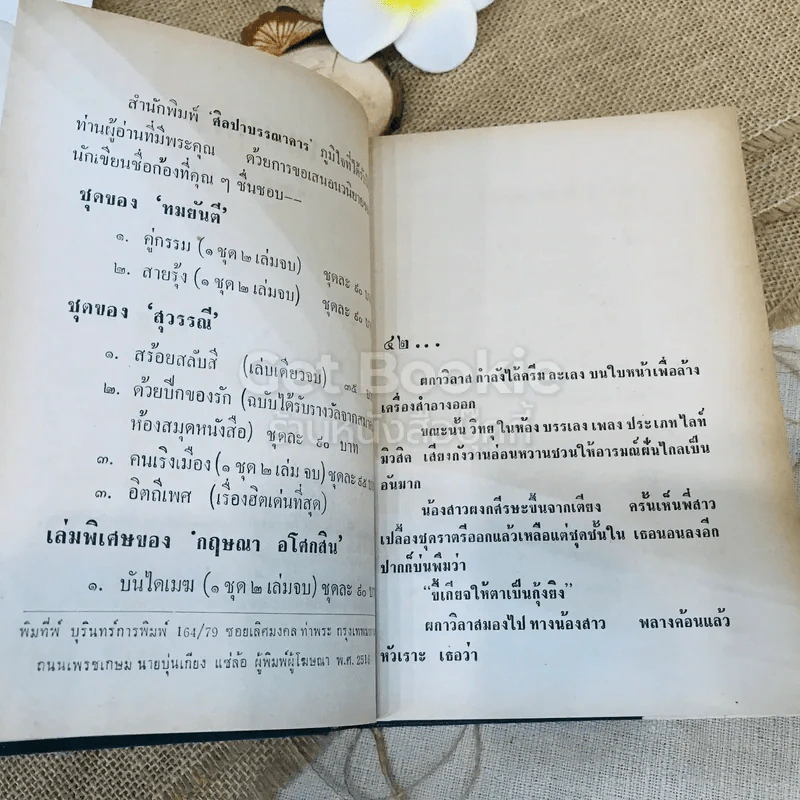 สำนักพิมพ์ 'ศิลปาบรรณาคาร' ภูมิใจที่ได้รับ
ท่านผู้อ่านที่มีพระคุณ ด้วยการขอเสนอนวนิยาย
นักเขียนชื่อก้องที่คุณ ๆ ชื่นชอบ--
ชุดของ 'ทมยันตี'
๑. คู่กรรม (๑ ชุด ๒ เล่มจบ) ชุดละ ๙๐ บาท
๒. สายรุ้ง (๑ ชุด ๒ เล่มจบ) ชุดละ ๙๐
ชุดของ 'สุวรรณี'
๑. สร้อยสลับสี (เล่มเดียวจบ) ๓๕
๒. ด้วยปีกของรัก (ฉบับได้รับรางวัลจากสมาคม
ห้องสมุดหนังสือ) ชุดละ ๙๐ บาท
๓. คนเริงเมือง (๑ ชุด ๒ เล่ม จบ) ชุดละ ๙๕ บาท
๓. อิตถีเพศ (เรื่องฮิตเด่นที่สุด)
เล่มพิเศษของ 'กฤษณา อโศกสิน'
๑. บันไดเมฆ (๑ ชุด ๒ เล่มจบ) ชุดละ ๙๐
พิมพ์ที่ บุรินทร์การพิมพ์ 164/79 ซอยเลิศมงคล ท่าพระ
ถนนเพชรเกษม นายบุ่นเกียง แซ่ล้อ ผู้พิมพ์ผู้โฆษณา พ.ศ.
๔๒...
ผกาวิลาส กำลังไล้ครีม ละเลง บนใบหน้าเพื่อล้าง
เครื่องสำอางออก
ขณะนั้น วิทยุ ในห้อง บรรเลง เพลง ประเภท ไลท์
มิวสิค เสียงกังวานอ่อนหวานชวนให้อารมณ์ฝันไกลเป็น
อันมาก
น้องสาวผงกศีรษะขึ้นจากเตียง ครั้นเห็นพี่สาว
เปลื้องชุดราตรีออกแล้วเหลือแต่ชุดชั้นใน เธอนอนลงอีก
ปากก็บ่นพึมว่า
"ขี้เกียจให้ตาเป็นกุ้งยิง"
ผกาวิลาสมองไป ทางน้องสาว พลางค้อนแล้ว
หัวเราะ เธอว่า
Get Bookie
ร้านหนังสือบุ๊คกี้